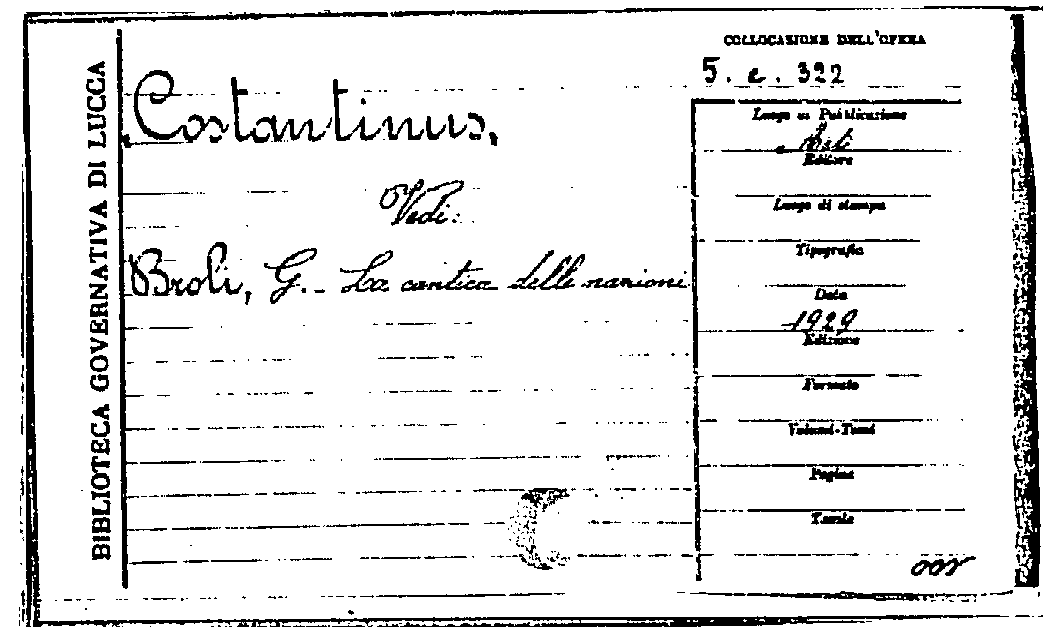 BIBLIOTECA GOVERNATIVA DI LUCCA
COLLOCAZIONE DELL'OPERA
5. e. 322
Costantinus,
Vedi:
Broli, G. - La cantica delle nazioni
Luogo di Pubblicazione
Asti
Editore
Luogo di stampa
Tipografia
Data
1929
Edizione
Formato
Volumi-Tomi
Pagine
Tavole